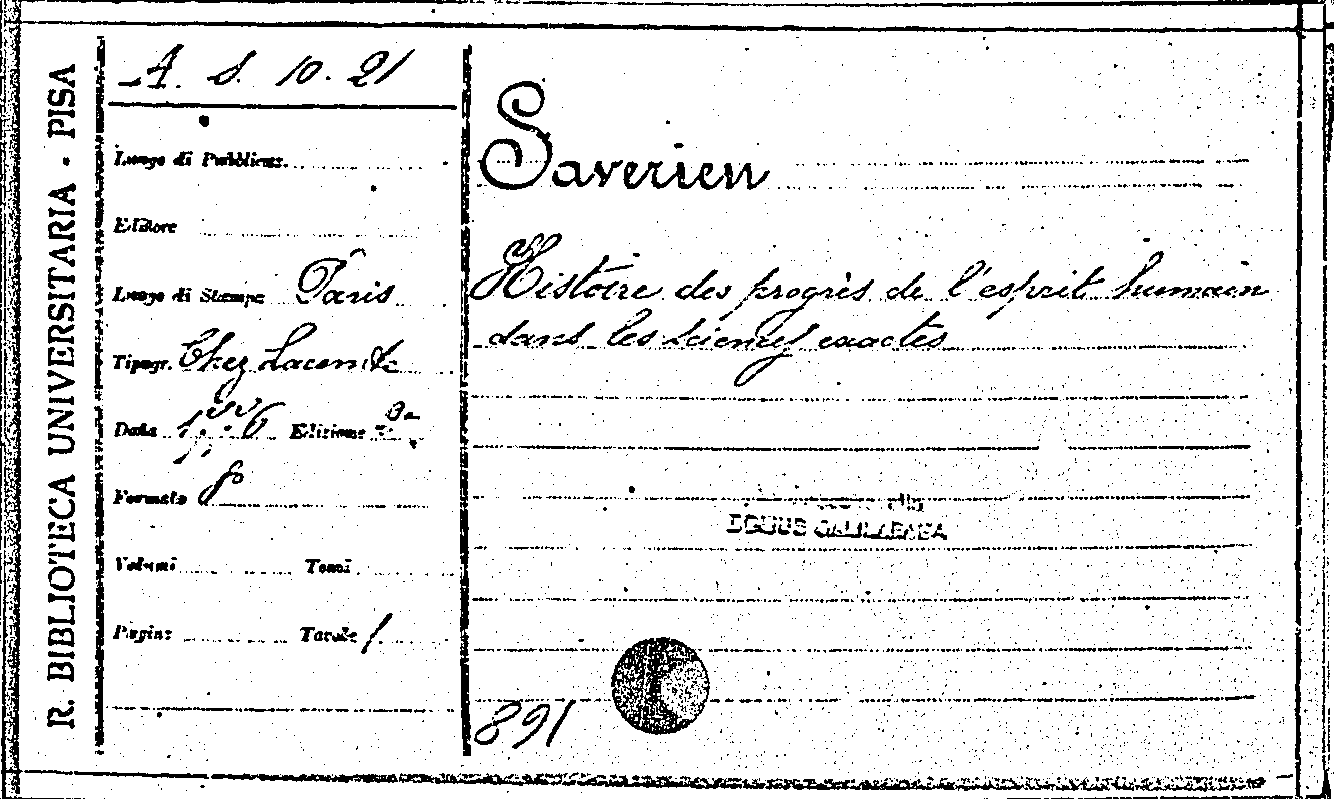 R. BIBLIOTECA UNIVERSITARIA - PISA
A. S. 10. 21
Luogo di Pubblicaz.
Editore
Luogo di Stampa Paris
Tipogr. Chez Lacombe
Data 1776 Edizione
Formato 8
Volumi Tomi
Pagine Tavole 1
Saverien
Histoire des progrès de l'esprit humain
dans les sciences exactes
DOMUS GALILAEANA
891